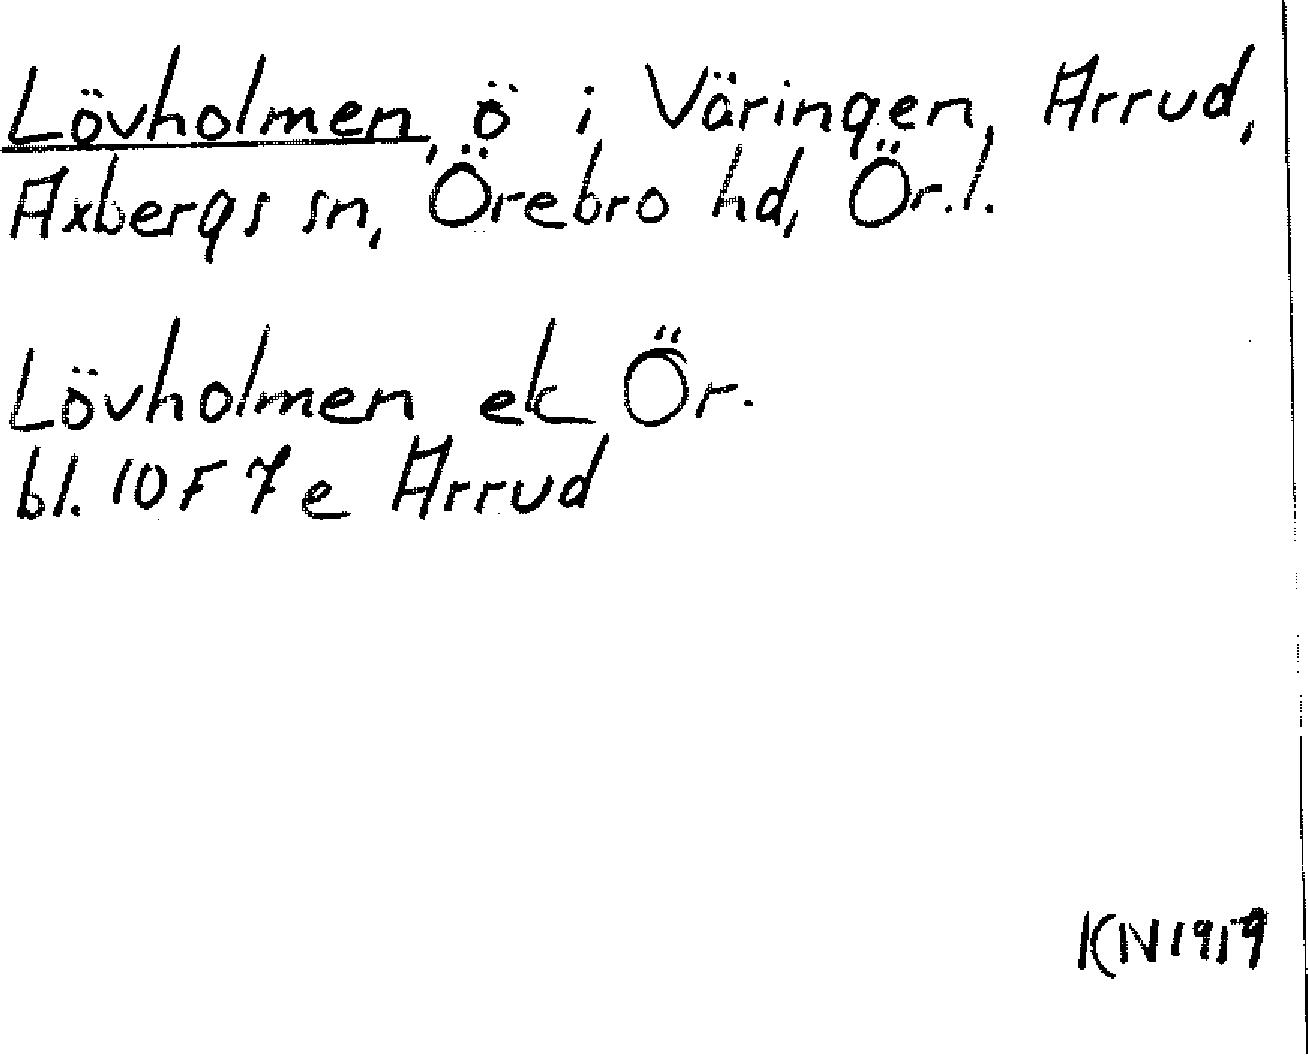 Lövholmen, ö i Väringen, Arrud,
Axbergs sn, Örebro hd, Ör.l.
Lövholmen ek Ör.
bl. 10F 7e Arrud